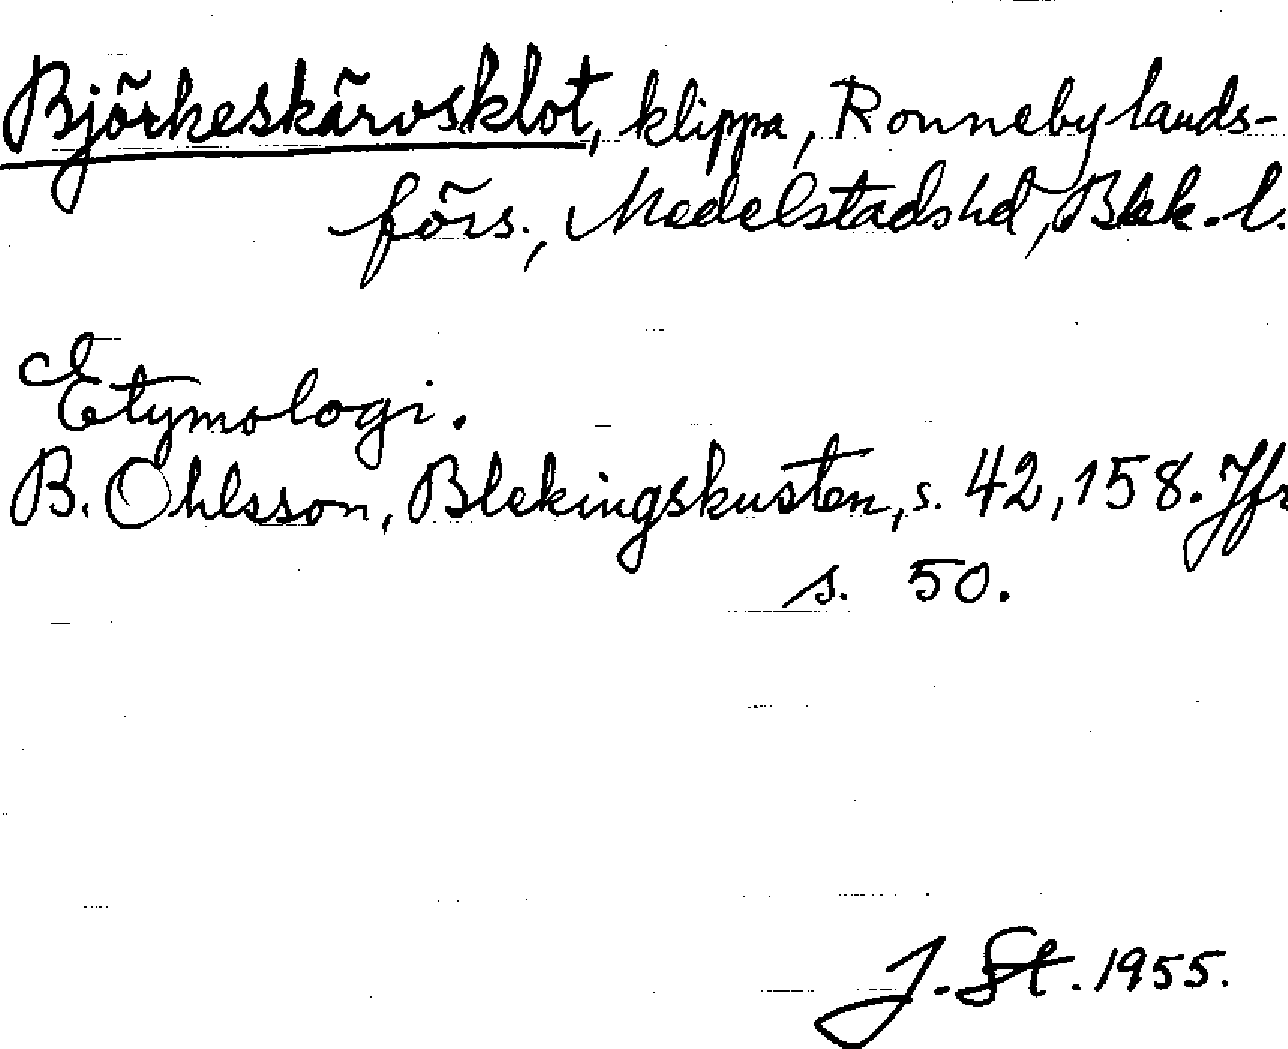 Björkeskärvsklot, klippa, Ronneby lands-
förs., Medelstads hd, Blek. l.
Etymologi.
B. Ohlsson, Blekingskusten, s. 42, 158. Jfr
s. 50.
J. St. 1955.